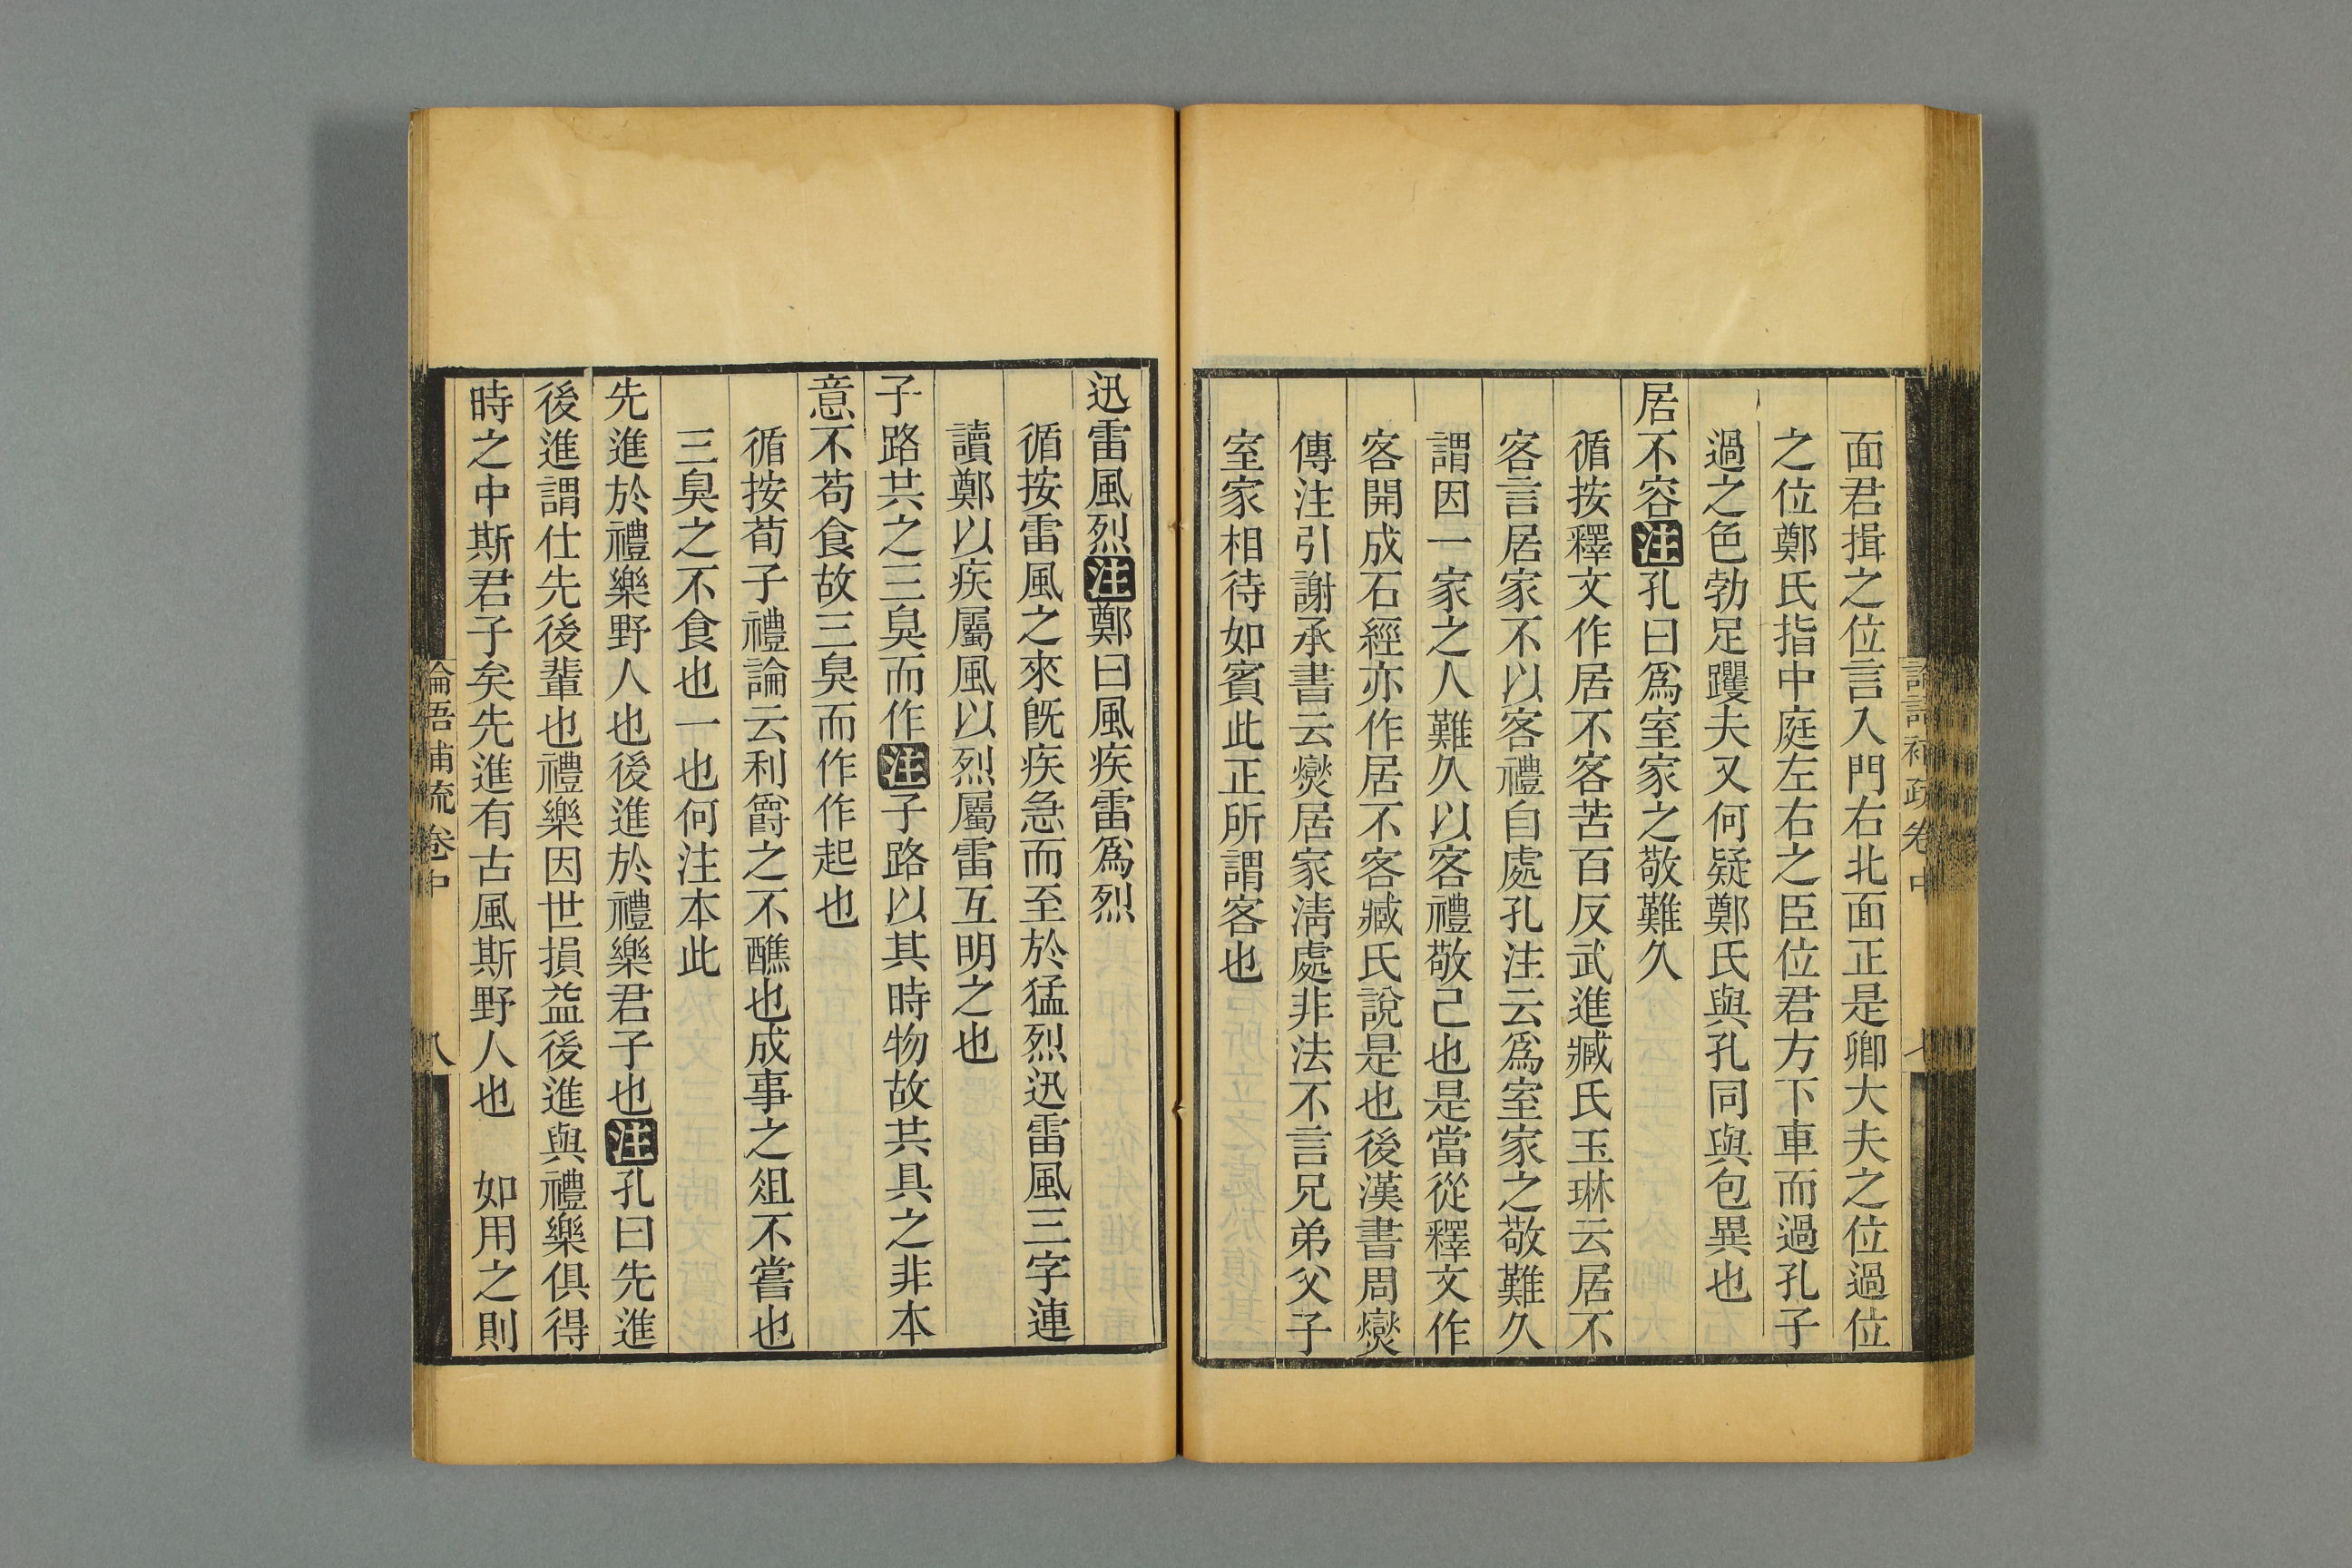 面君揖之位言入門右北面正是卿大夫之位過位
之位鄭氏指中庭左右之臣位君方下車而過孔子
過之色勃足躩夫又何疑鄭氏與孔同與包異也
居不容注孔曰爲室家之敬難久
循按釋文作居不客苦百反武進臧氏玉琳云居不
客言居家不以客禮自處孔注云爲室家之敬難久
謂因一家之人難久以客禮敬己也是當從釋文作
客開成石經亦作居不客臧氏說是也後漢書周燮
傳注引謝承書云燮居家淸處非法不言兄弟父子
室家相待如賓此正所謂客也
論語補疏卷中 七
迅雷風烈注鄭曰風疾雷爲烈
循按雷風之來旣疾急而至於猛烈迅雷風三字連
讀鄭以疾屬風以烈屬雷互明之也
子路共之三臭而作注子路以其時物故共具之非本
意不苟食故三臭而作作起也
循按荀子禮論云利爵之不醮也成事之俎不嘗也
三臭之不食也一也何注本此
先進於禮樂野人也後進於禮樂君子也注孔曰先進
後進謂仕先後輩也禮樂因世損益後進與禮樂俱得
時之中斯君子矣先進有古風斯野人也 如用之則
論語補疏卷中 八